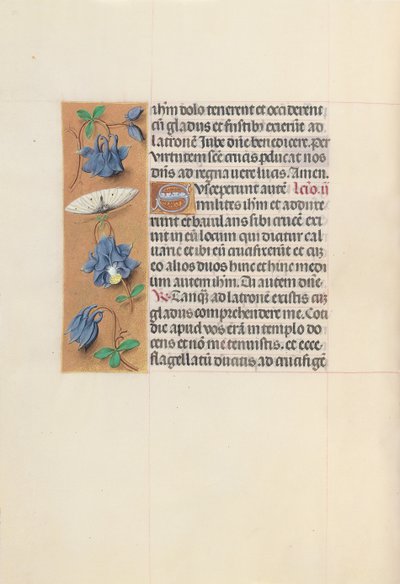 ihm dolo tenerent et occiderent
cū gladiis et fustibꝰ exierūt ad
latronē Jube dn̄e benedicere. Per
virtutem sc̄e crucis pducat nos
dn̄s ad regna vere lucis. Amen.
Susceperunt autē lectio. ij
milites ihm et addixe
runt et baiulans sibi crucē exi
uit in eū locum qui dicitur cal
uarie et ibi eū crucifixerūt et cū
eo alios duos hinc et hinc medi
um autem ihm. Tu autem dn̄e
R. Tanqꝫ ad latronē existis cū
gladiis comprehendere me. Coti
die apud vos erā in templo do
cens et nō me tenuistis. et ecce
flagellatū ducitis ad crucifigē